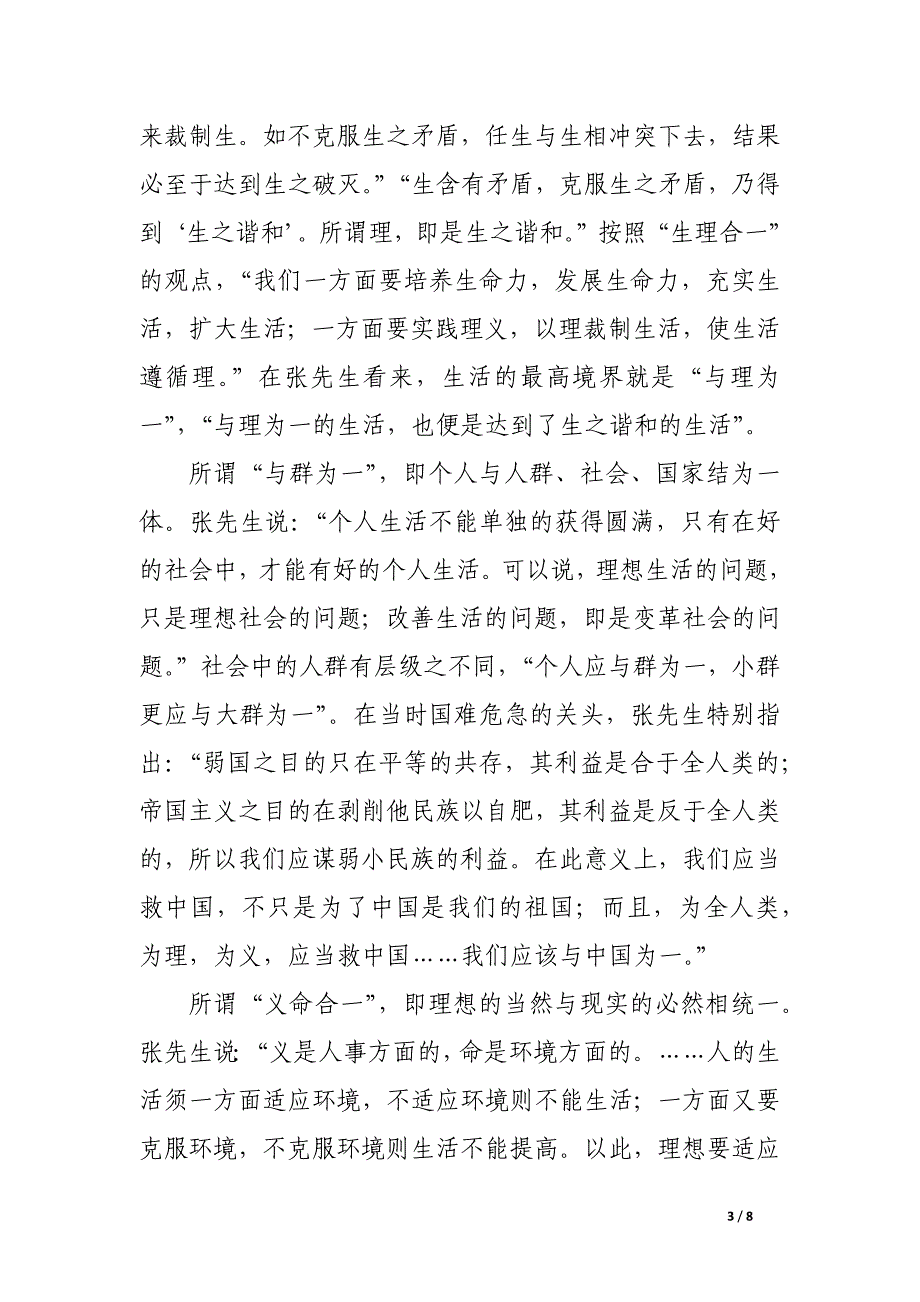 来裁制生。如不克服生之矛盾，任生与生相冲突下去，结果
必至于达到生之破灭。”“生含有矛盾，克服生之矛盾，乃得
到‘生之谐和’。所谓理，即是生之谐和。”按照“生理合一”
的观点，“我们一方面要培养生命力，发展生命力，充实生
活，扩大生活；一方面要实践理义，以理裁制生活，使生活
遵循理。”在张先生看来，生活的最高境界就是“与理为
一”，“与理为一的生活，也便是达到了生之谐和的生活”。
所谓“与群为一”，即个人与人群、社会、国家结为一
体。张先生说：“个人生活不能单独的获得圆满，只有在好
的社会中，才能有好的个人生活。可以说，理想生活的问题，
只是理想社会的问题；改善生活的问题，即是变革社会的问
题。”社会中的人群有层级之不同，“个人应与群为一，小群
更应与大群为一”。在当时国难危急的关头，张先生特别指
出：“弱国之目的只在平等的共存，其利益是合于全人类的；
帝国主义之目的在剥削他民族以自肥，其利益是反于全人类
的，所以我们应谋弱小民族的利益。在此意义上，我们应当
救中国，不只是为了中国是我们的祖国；而且，为全人类，
为理，为义，应当救中国……我们应该与中国为一。”
所谓“义命合一”，即理想的当然与现实的必然相统一。
张先生说：“义是人事方面的，命是环境方面的。……人的生
活须一方面适应环境，不适应环境则不能生活；一方面又要
克服环境，不克服环境则生活不能提高。以此，理想要适应
3 / 8